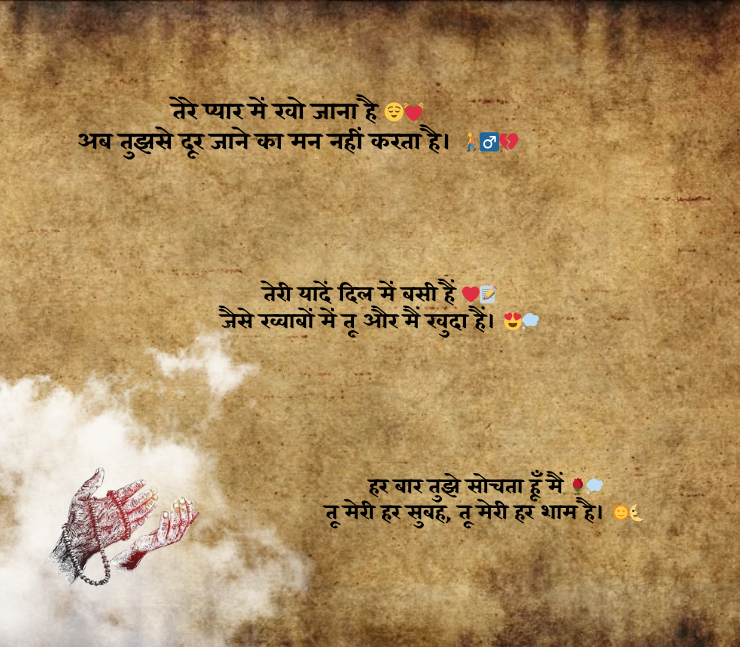 तेरे प्यार में खो जाना है 😌💓
अब तुझसे दूर जाने का मन नहीं करता है। 🚶♂️💔
तेरी यादें दिल में बसी हैं ❤️📝
जैसे ख्वाबों में तू और मैं खुदा हैं। 😍💭
हर बार तुझे सोचता हूँ मैं 🌹💭
तू मेरी हर सुबह, तू मेरी हर शाम है। 🌞🌜